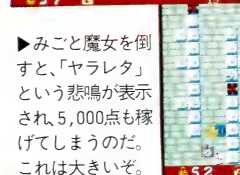 ▶みごと魔女を倒
すと、「ヤラレタ」
という悲鳴が表示
され、5,000点も稼
げてしまうのだ。
これは大きいぞ。
52